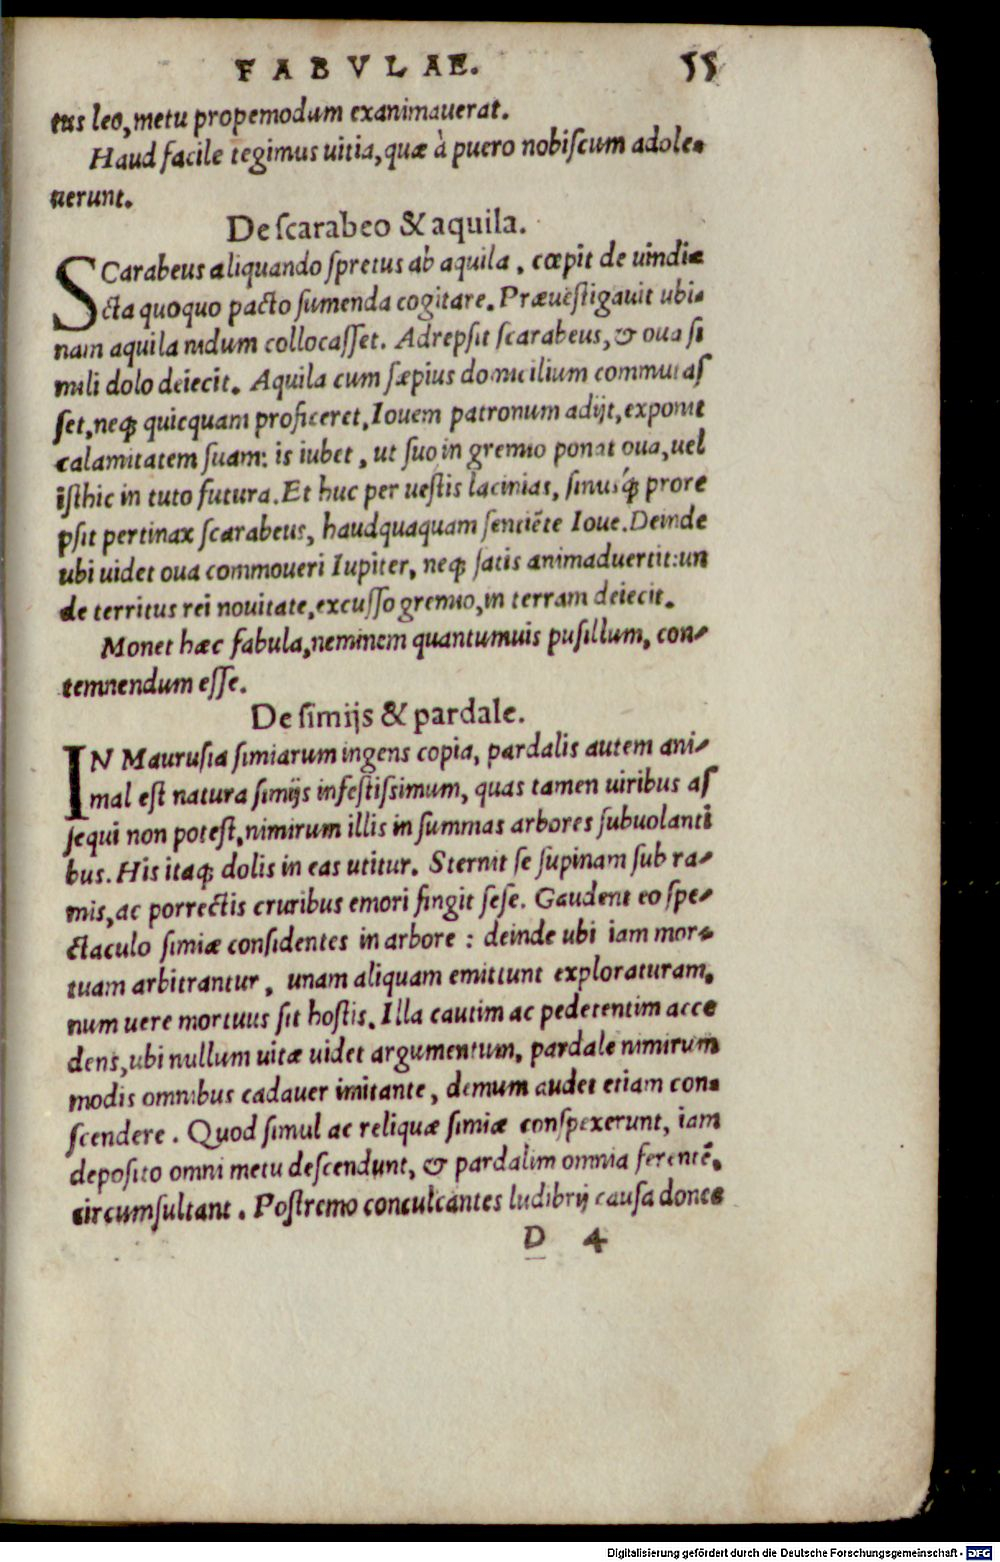 FABVLAE. 55
tus leo, metu propemodum exanimauerat.
Haud facile tegimus uitia, quæ à puero nobiſcum adole-
uerunt.
De ſcarabeo & aquila.
SCarabeus aliquando ſpretus ab aquila, cœpit de uindi-
cta quoquo pacto ſumenda cogitare. Præueſtigauit ubi-
nam aquila nidum collocaſſet. Adrepſit ſcarabeus, & oua ſi
mili dolo deiecit. Aquila cum ſæpius domicilium commutaſ
ſet, neqꝫ quicquam proficeret, Iouem patronum adijt, exponit
calamitatem ſuam: is iubet, ut ſuo in gremio ponat oua, uel
iſthic in tuto futura. Et huc per ueſtis lacinias, ſinusqꝫ́ prore
pſit pertinax ſcarabeus, haudquaquam ſentiẽte Ioue. Deinde
ubi uidet oua commoueri Iupiter, neqꝫ ſatis animaduertit: un
de territus rei nouitate, excuſſo gremio, in terram deiecit.
Monet hæc fabula, neminem quantumuis puſillum, con-
temnendum eſſe.
De ſimijs & pardale.
IN Mauruſia ſimiarum ingens copia, pardalis autem ani-
mal eſt natura ſimijs infeſtiſsimum, quas tamen uiribus aſ
ſequi non poteſt, nimirum illis in ſummas arbores ſubuolanti
bus. His itaqꝫ dolis in eas utitur. Sternit ſe ſupinam ſub ra-
mis, ac porrectis cruribus emori fingit ſeſe. Gaudent eo ſpe-
ctaculo ſimiæ conſidentes in arbore: deinde ubi iam mor-
tuam arbitrantur, unam aliquam emittunt exploraturam,
num uere mortuus ſit hoſtis. Illa cautim ac pedetentim acce
dens, ubi nullum uitæ uidet argumentum, pardale nimirum
modis omnibus cadauer imitante, demum audet etiam con-
ſcendere. Quod ſimul ac reliquæ ſimiæ conſpexerunt, iam
depoſito omni metu deſcendunt, & pardalim omnia ferentẽ,
circumſultant. Poſtremo conculcantes ludibrij cauſa donec
D 4
Digitalisierung gefördert durch die Deutsche Forschungsgemeinschaft - DFG